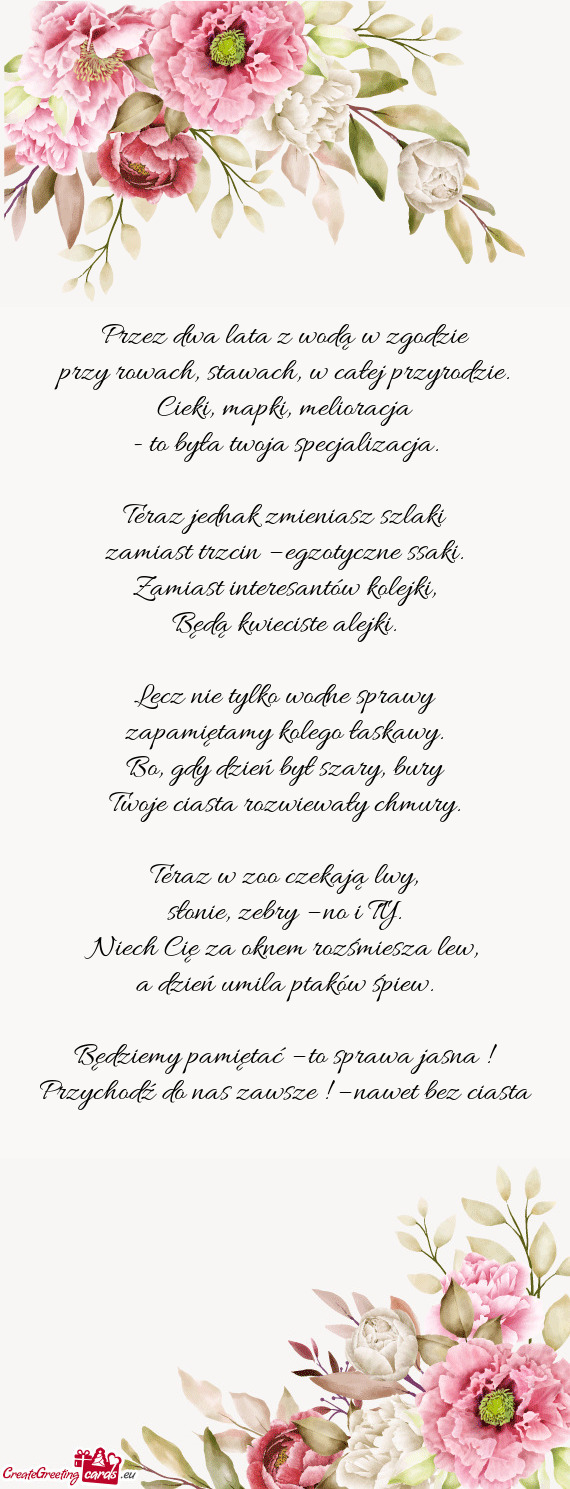 Przez dwa lata z wodą w zgodzie
przy rowach, stawach, w całej przyrodzie.
Cieki, mapki, melioracja
- to była twoja specjalizacja.
Teraz jednak zmieniasz szlaki
zamiast trzcin – egzotyczne ssaki.
Zamiast interesantów kolejki,
Będą kwieciste alejki.
Lecz nie tylko wodne sprawy
zapamiętamy kolego łaskawy.
Bo, gdy dzień był szary, bury
Twoje ciasta rozwiewały chmury.
Teraz w zoo czekają lwy,
słonie, zebry – no i TY.
Niech Cię za oknem rozśmiesza lew,
a dzień umila ptaków śpiew.
Będziemy pamiętać – to sprawa jasna !
Przychodź do nas zawsze ! – nawet bez ciasta
CreateGreeting cards .eu